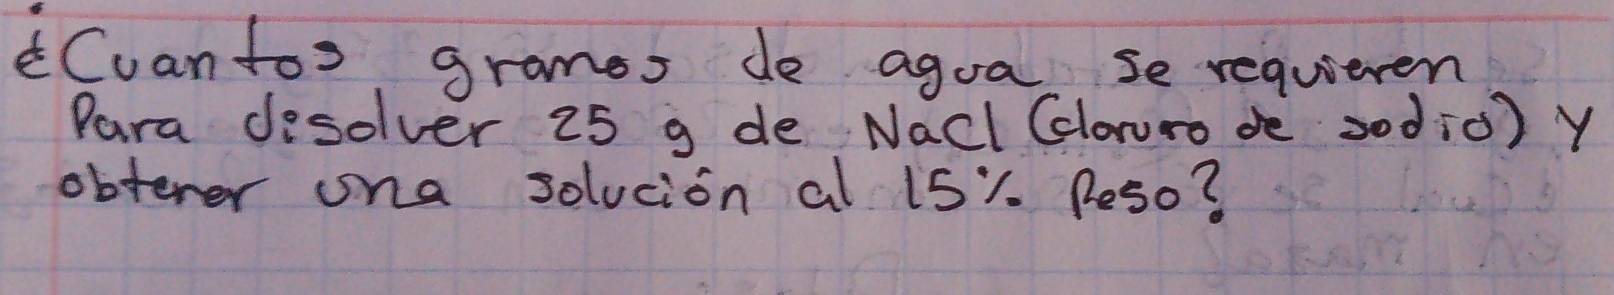 ¿Cuantos gramos de agua se requieren
Para disolver 25 g de NaCl (cloruro de sodio) y
obtener una solución al 15% Peso?